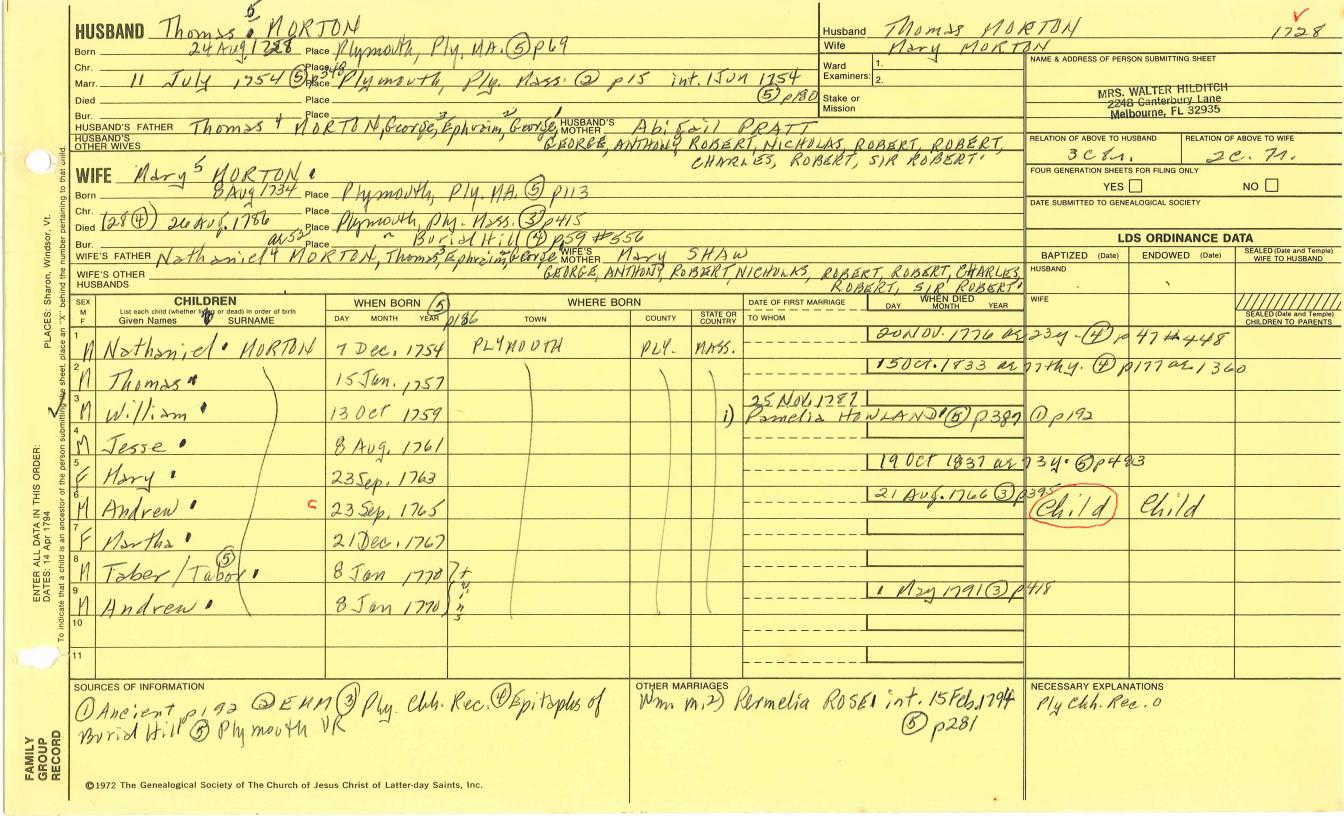 HUSBAND Thomas 5 MORTON
Born 24 Aug 1728 Place Plymouth, Ply, MA. ⑤ p69
Chr. Place
Marr. 11 July, 1754 ⑤ p349 Place Plymouth, Ply. Mass. ② p15 int. 1 Jun 1754
Died Place ⑤ p180
Bur. Place
HUSBAND'S FATHER Thomas 4 MORTON, George, 3 Ephraim, 2 George, 1 HUSBAND'S MOTHER Abigail PRATT
HUSBAND'S OTHER WIVES GEORGE, ANTHONY, ROBERT, NICHOLAS, ROBERT, ROBERT,
CHARLES, ROBERT, SIR ROBERT.
Husband Thomas MORTON 1728
Wife Mary MORTON
Ward Examiners: 1.
2.
Stake or Mission
NAME & ADDRESS OF PERSON SUBMITTING SHEET
MRS. WALTER HILDITCH
2248 Canterbury Lane
Melbourne, FL 32935
RELATION OF ABOVE TO HUSBAND RELATION OF ABOVE TO WIFE
FOUR GENERATION SHEETS FOR FILING ONLY
YES NO
DATE SUBMITTED TO GENEALOGICAL SOCIETY
WIFE Mary 5 MORTON
Born 8 Aug 1734 Place Plymouth, Ply. MA. ⑤ p113
Chr. Place
Died (28 ④) 26 Aug. 1786 Place Plymouth, Ply. Mass. ③ p415
Bur. ae 52 Place " Burial Hill ④ p59 #556
WIFE'S FATHER Nathaniel 4 MORTON, Thomas, 3 Ephraim, George WIFE'S MOTHER Mary SHAW
WIFE'S OTHER HUSBANDS GEORGE, ANTHONY, ROBERT, NICHOLAS, ROBERT, ROBERT, CHARLES,
ROBERT, SIR ROBERT.
LDS ORDINANCE DATA
BAPTIZED (Date) ENDOWED (Date) SEALED (Date and Temple) WIFE TO HUSBAND
HUSBAND
WIFE
SEALED (Date and Temple) CHILDREN TO PARENTS
SEX M F
CHILDREN
List each child (whether living or dead) in order of birth
Given Names SURNAME
WHEN BORN ⑤ p186
DAY MONTH YEAR
WHERE BORN
TOWN COUNTY STATE OR COUNTRY
DATE OF FIRST MARRIAGE
TO WHOM
WHEN DIED
DAY MONTH YEAR
1 M Nathaniel MORTON 7 Dec. 1754 PLYMOUTH PLY. MASS. 20 NOV. 1776 ae 23y. ④ p47 #448
2 M Thomas 15 Jan. 1757 15 Oct. 1833 ae 77thy. ④ p177 ae 1360
3 M William 13 Oct 1759 25 Nov. 1787
i) Pamelia HOWLAND ⑤ p387 ① p192
4 M Jesse 8 Aug. 1761
5 F Mary 23 Sep. 1763 19 Oct 1837 ae 73y. ⑤ p493
6 M Andrew c 23 Sep. 1765 21 Aug. 1766 ③ p395 Child Child
7 F Martha 21 Dec. 1767
8 M Taber / Tabor ⑤ 8 Jan 1770 twins
9 M Andrew 8 Jan 1770 1 May 1791 ③ p418
10
11
SOURCES OF INFORMATION
① Ancient p192 ② EHM ③ Ply. Chh. Rec. ④ Epitaphs of
Burial Hill ⑤ Plymouth VR
OTHER MARRIAGES
Wm. m. 2) Permelia ROSE int. 15 Feb. 1794
⑤ p281
NECESSARY EXPLANATIONS
Ply Chh. Rec. 0
©1972 The Genealogical Society of The Church of Jesus Christ of Latter-day Saints, Inc.
FAMILY GROUP RECORD
ENTER ALL DATA IN THIS ORDER:
DATES: 14 Apr 1794
PLACES: Sharon, Windsor, Vt.
To indicate that a child is an ancestor of the person submitting the sheet, place an "X" behind the number pertaining to that child.